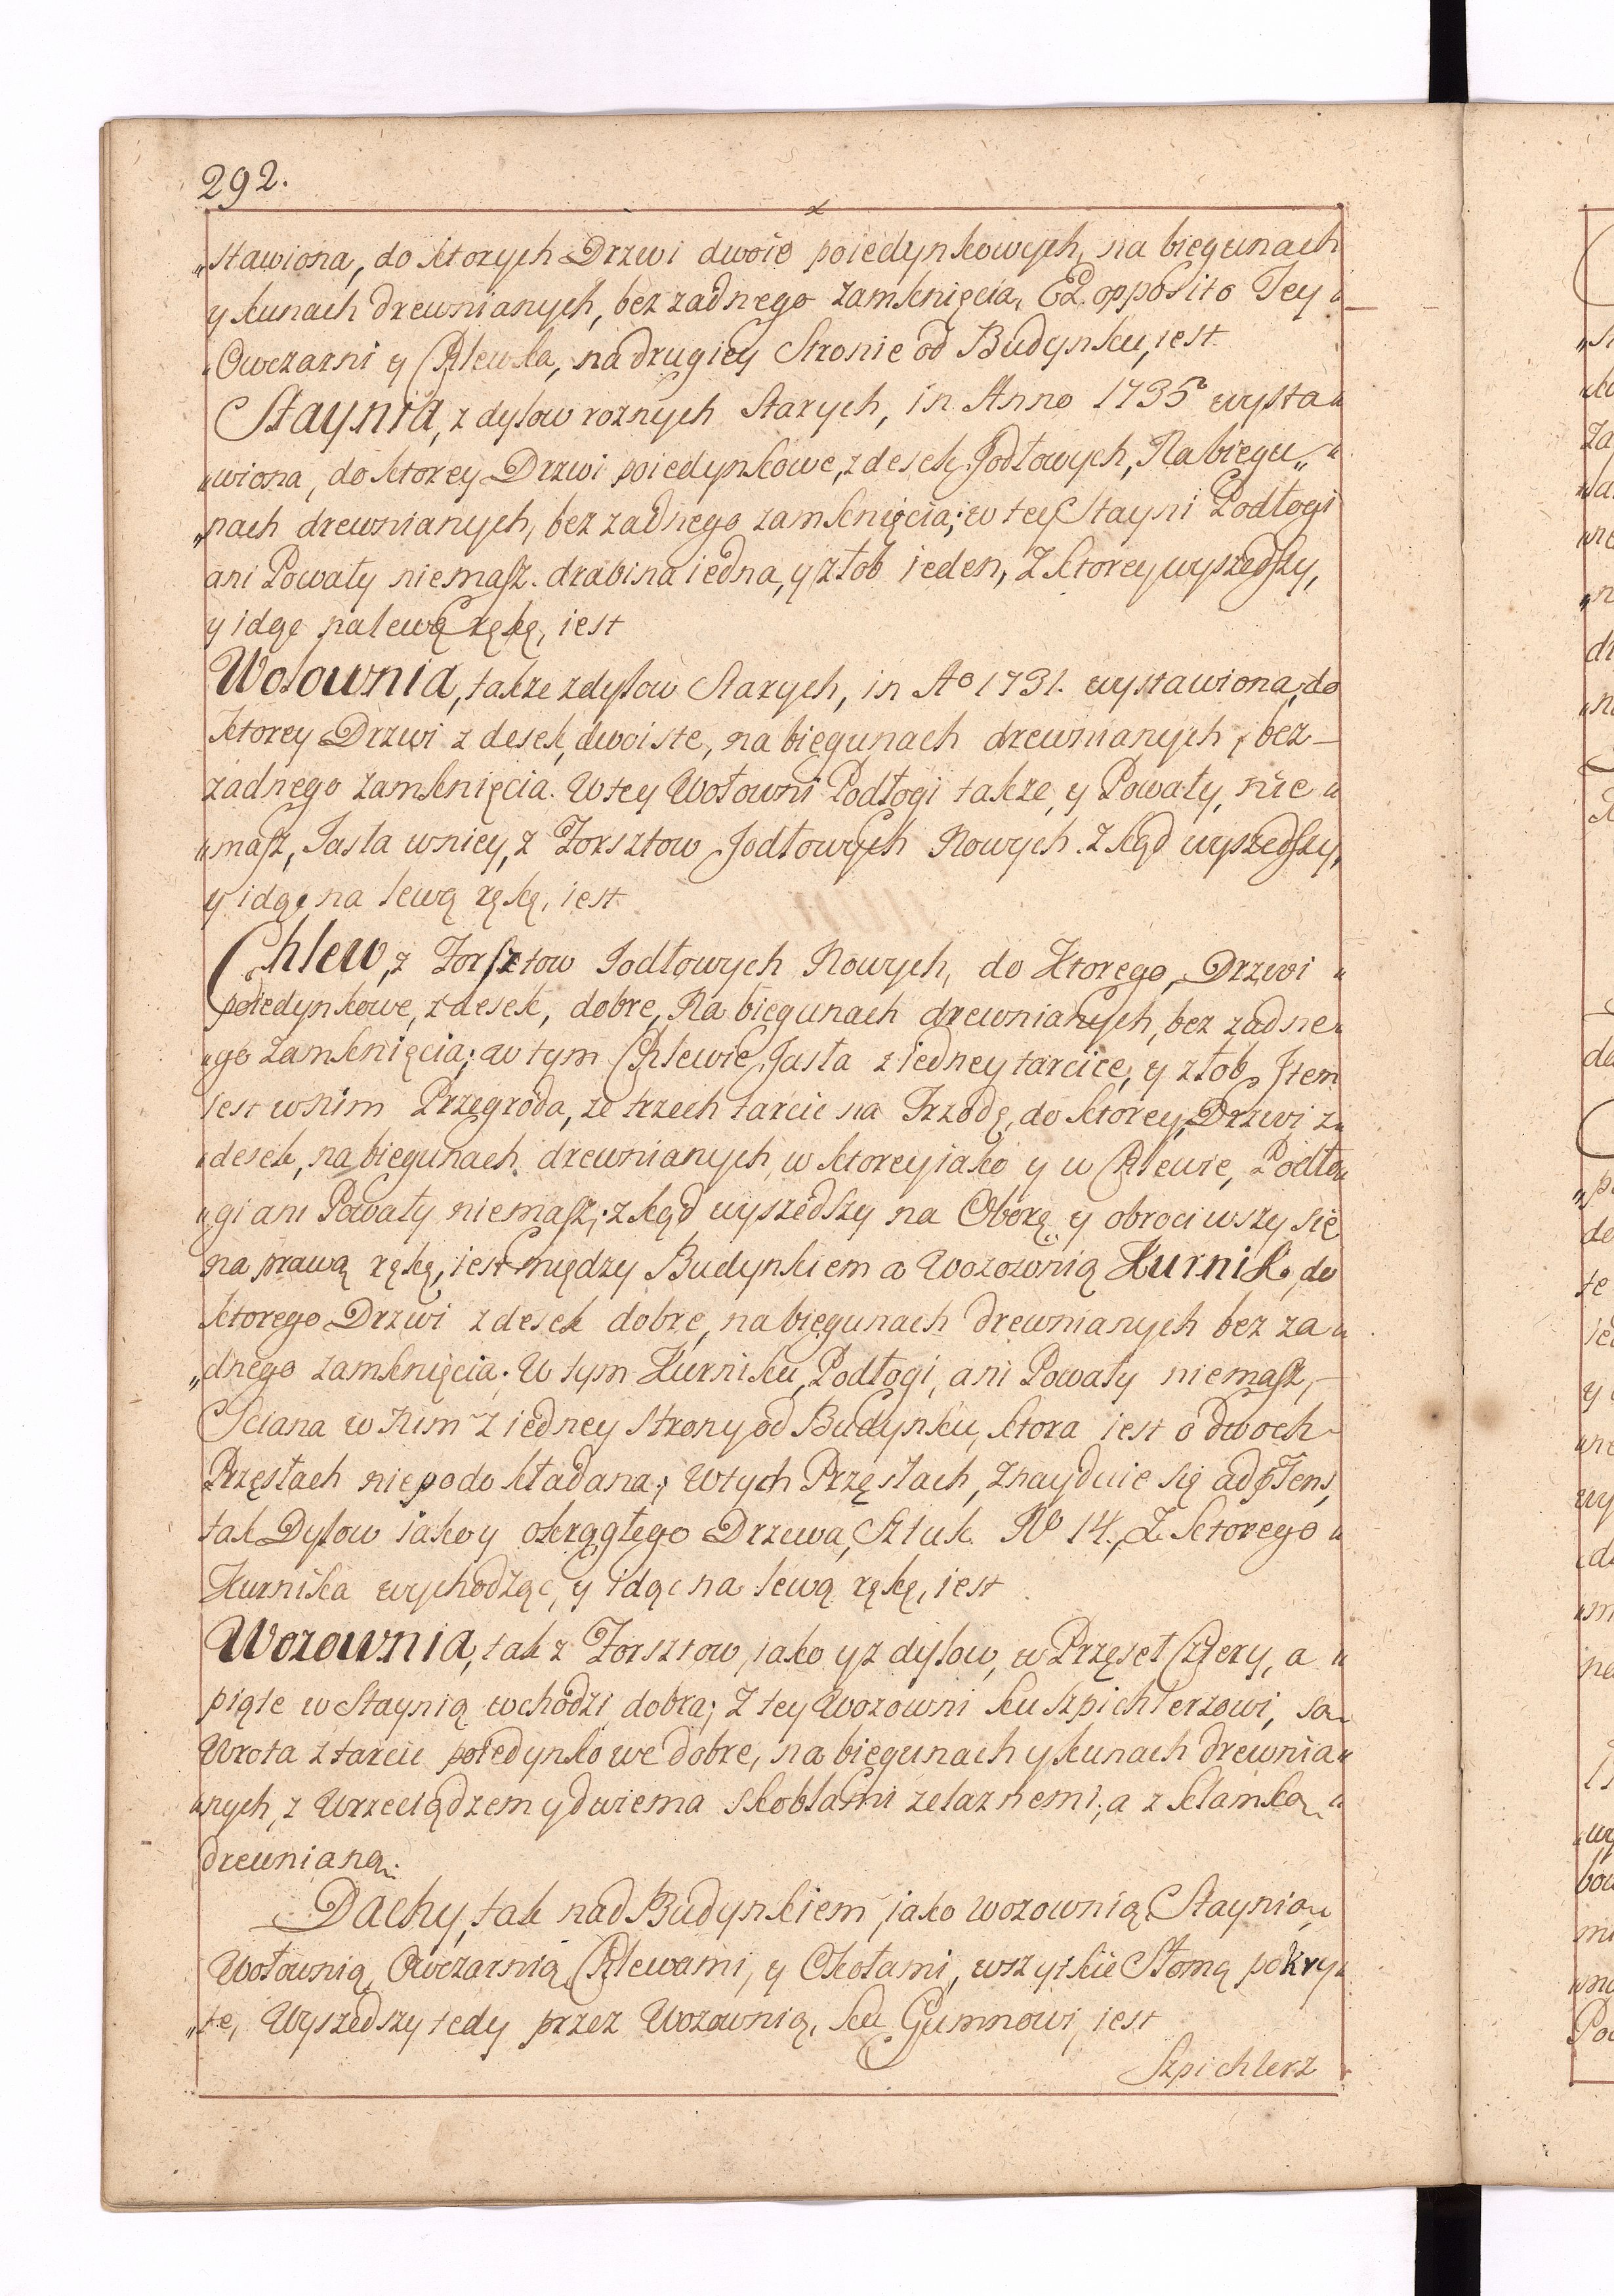 292.
„stawiona, do ktorych Drzwi dwoie poiedynkowych, na biegunach
y kunach drewnianych, bez zadnego zamknięcia, Ex opposito Tey „
„Owczarni y Chlewka, na drugiey Stronie od Budynku, iest
Staynia, z dylow roznych Starych, in Anno 1735 wysta„
„wiona, do ktorey Drzwi poiedynkowe, z desek Jodłowych, Na biegu„
„nach drewnianych, bez zadnego zamknięcia; w tey Stayni Podłogi
ani Powały niemasz. drabina iedna, y złob ieden, Z ktorey wyszedszy,
y idąc na lewą rękę, iest
Wołownia, takze z dylow Starych, in Ao 1731. wystawiona, do
ktorey Drzwi z desek, dwoiste, na biegunach drewnianych, bez –
zadnego zamknięcia. W tey Wołowni Podłogi takze, y Powały, nie „
„masz, Jasła w niey, z Forsztow Jodłowych Nowych. Zkąd wyszedszy,
y idąc na lewą rękę, iest
Chlew, z Forsztow Jodłowych Nowych, do Ktorego, Drzwi „
poiedynkowe, z desek, dobre, Na biegunach drewnianych, bez zadne„
„go zamknięcia; w tym Chlewie Jasła z iedney tarcice, y złob, Jtem
iest w nim Przegroda, ze trzech tarcic na Trzodę, do ktorey, Drzwi z„
„desek, na biegunach drewnianych, w ktorey iako y w Chlewie, Podło„
„gi ani Powały niemasz; zkąd wyszedszy na Oborę y obrociwszy się
na prawą rękę, iest między Budynkiem a Wozownią Kurnik, do
ktorego Drzwi z desek dobre, na biegunach drewnianych bez za„
„dnego zamknięcia. W tym Kurniku, Podłogi, ani Powały niemasz, –
Sciana w Nim z iedney strony od Budynku, ktora iest o dwoch
Przęsłach niepodokładana; W tych Przęsłach, znayduie się ad p̶t̶ens,
tak Dylow iako y okrągłego Drzewa, Sztuk No 14., Z ktorego „
Kurnika wychodząc, y idąc na lewą rękę, iest
Wozownia, tak z Forsztow, iako y z dylow, w Przęseł Cztery, a „
piąte w Staynią wchodzi dobra; Z tey Wozowni ku Szpichlerzowi, są
Wrota z tarcic poiedynkowe dobre, na biegunach y kunach drewnia„
„nych, z Wrzeciądzem y dwiema skoblami zelaznemi, a z klamką „
drewnianą.
Dachy, tak nad Budynkiem, iako wozownią, Staynią,
Wołownią, Owczarnią, Chlewami, y Okołami, wszytkie Słomą pokry„
„te, Wyszedszy tedy przez Wozownią, ku Gumnowi, iest
Szpichlerz